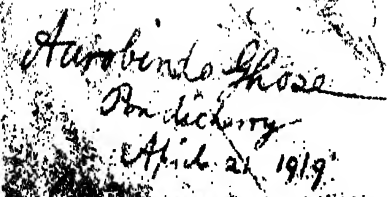 Aurobindo Ghose
Pondicherry
April 21 1919.